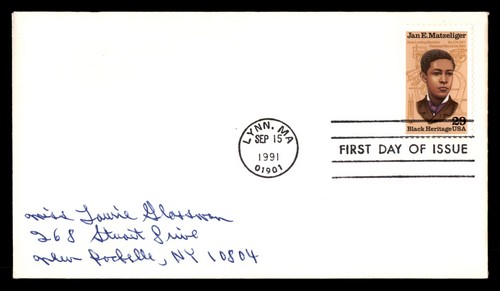 Jan E. Matzeliger
29
Black Heritage USA
LYNN, MA
SEP 15
1991
01901
FIRST DAY OF ISSUE
Miss Laurie Glassman
268 Stuart Drive
New Rochelle, NY 10804